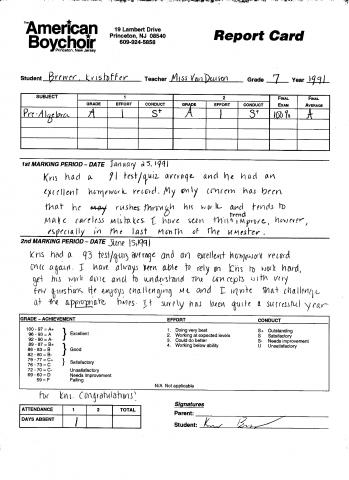 The American Boychoir
Princeton, New Jersey
19 Lambert Drive
Princeton, NJ 08540
609-924-5858
Report Card
Student Brewer, Kristoffer Teacher Miss Van Deusen Grade 7 Year 1991
SUBJECT 1 2 FINAL EXAM FINAL AVERAGE
GRADE EFFORT CONDUCT GRADE EFFORT CONDUCT
Pre-Algebra A 1 S+ A 1 S+ 100% A
1st MARKING PERIOD – DATE January 25, 1991
Kris had a 91 test/quiz average and he had an
excellent homework record. My only concern has been
that he rushes through his work and tends to
make careless mistakes. I have seen this trend improve, however,
especially in the last month of the semester.
2nd MARKING PERIOD – DATE June 15, 1991
Kris had a 93 test/quiz average and an excellent homework record
once again. I have always been able to rely on Kris to work hard,
get his work done and to understand the concepts with very
few questions. He enjoys challenging me and I invite that challenge
at the appropriate times. It surely has been quite a successful year
GRADE – ACHIEVEMENT EFFORT CONDUCT
100 - 97 = A+
96 - 93 = A
92 - 90 = A-
Excellent
89 - 87 = B+
86 - 83 = B
82 - 80 = B-
Good
79 - 77 = C+
76 - 73 = C
Satisfactory
72 - 70 = C- Unsatisfactory
69 - 60 = D Needs Improvement
59 = F Failing
1. Doing very best
2. Working at expected levels
3. Could do better
4. Working below ability
S+ Outstanding
S Satisfactory
S- Needs improvement
U Unsatisfactory
N/A Not applicable
for Kris. Congratulations!
ATTENDANCE 1 2 TOTAL
DAYS ABSENT 1
Signatures
Parent:
Student: